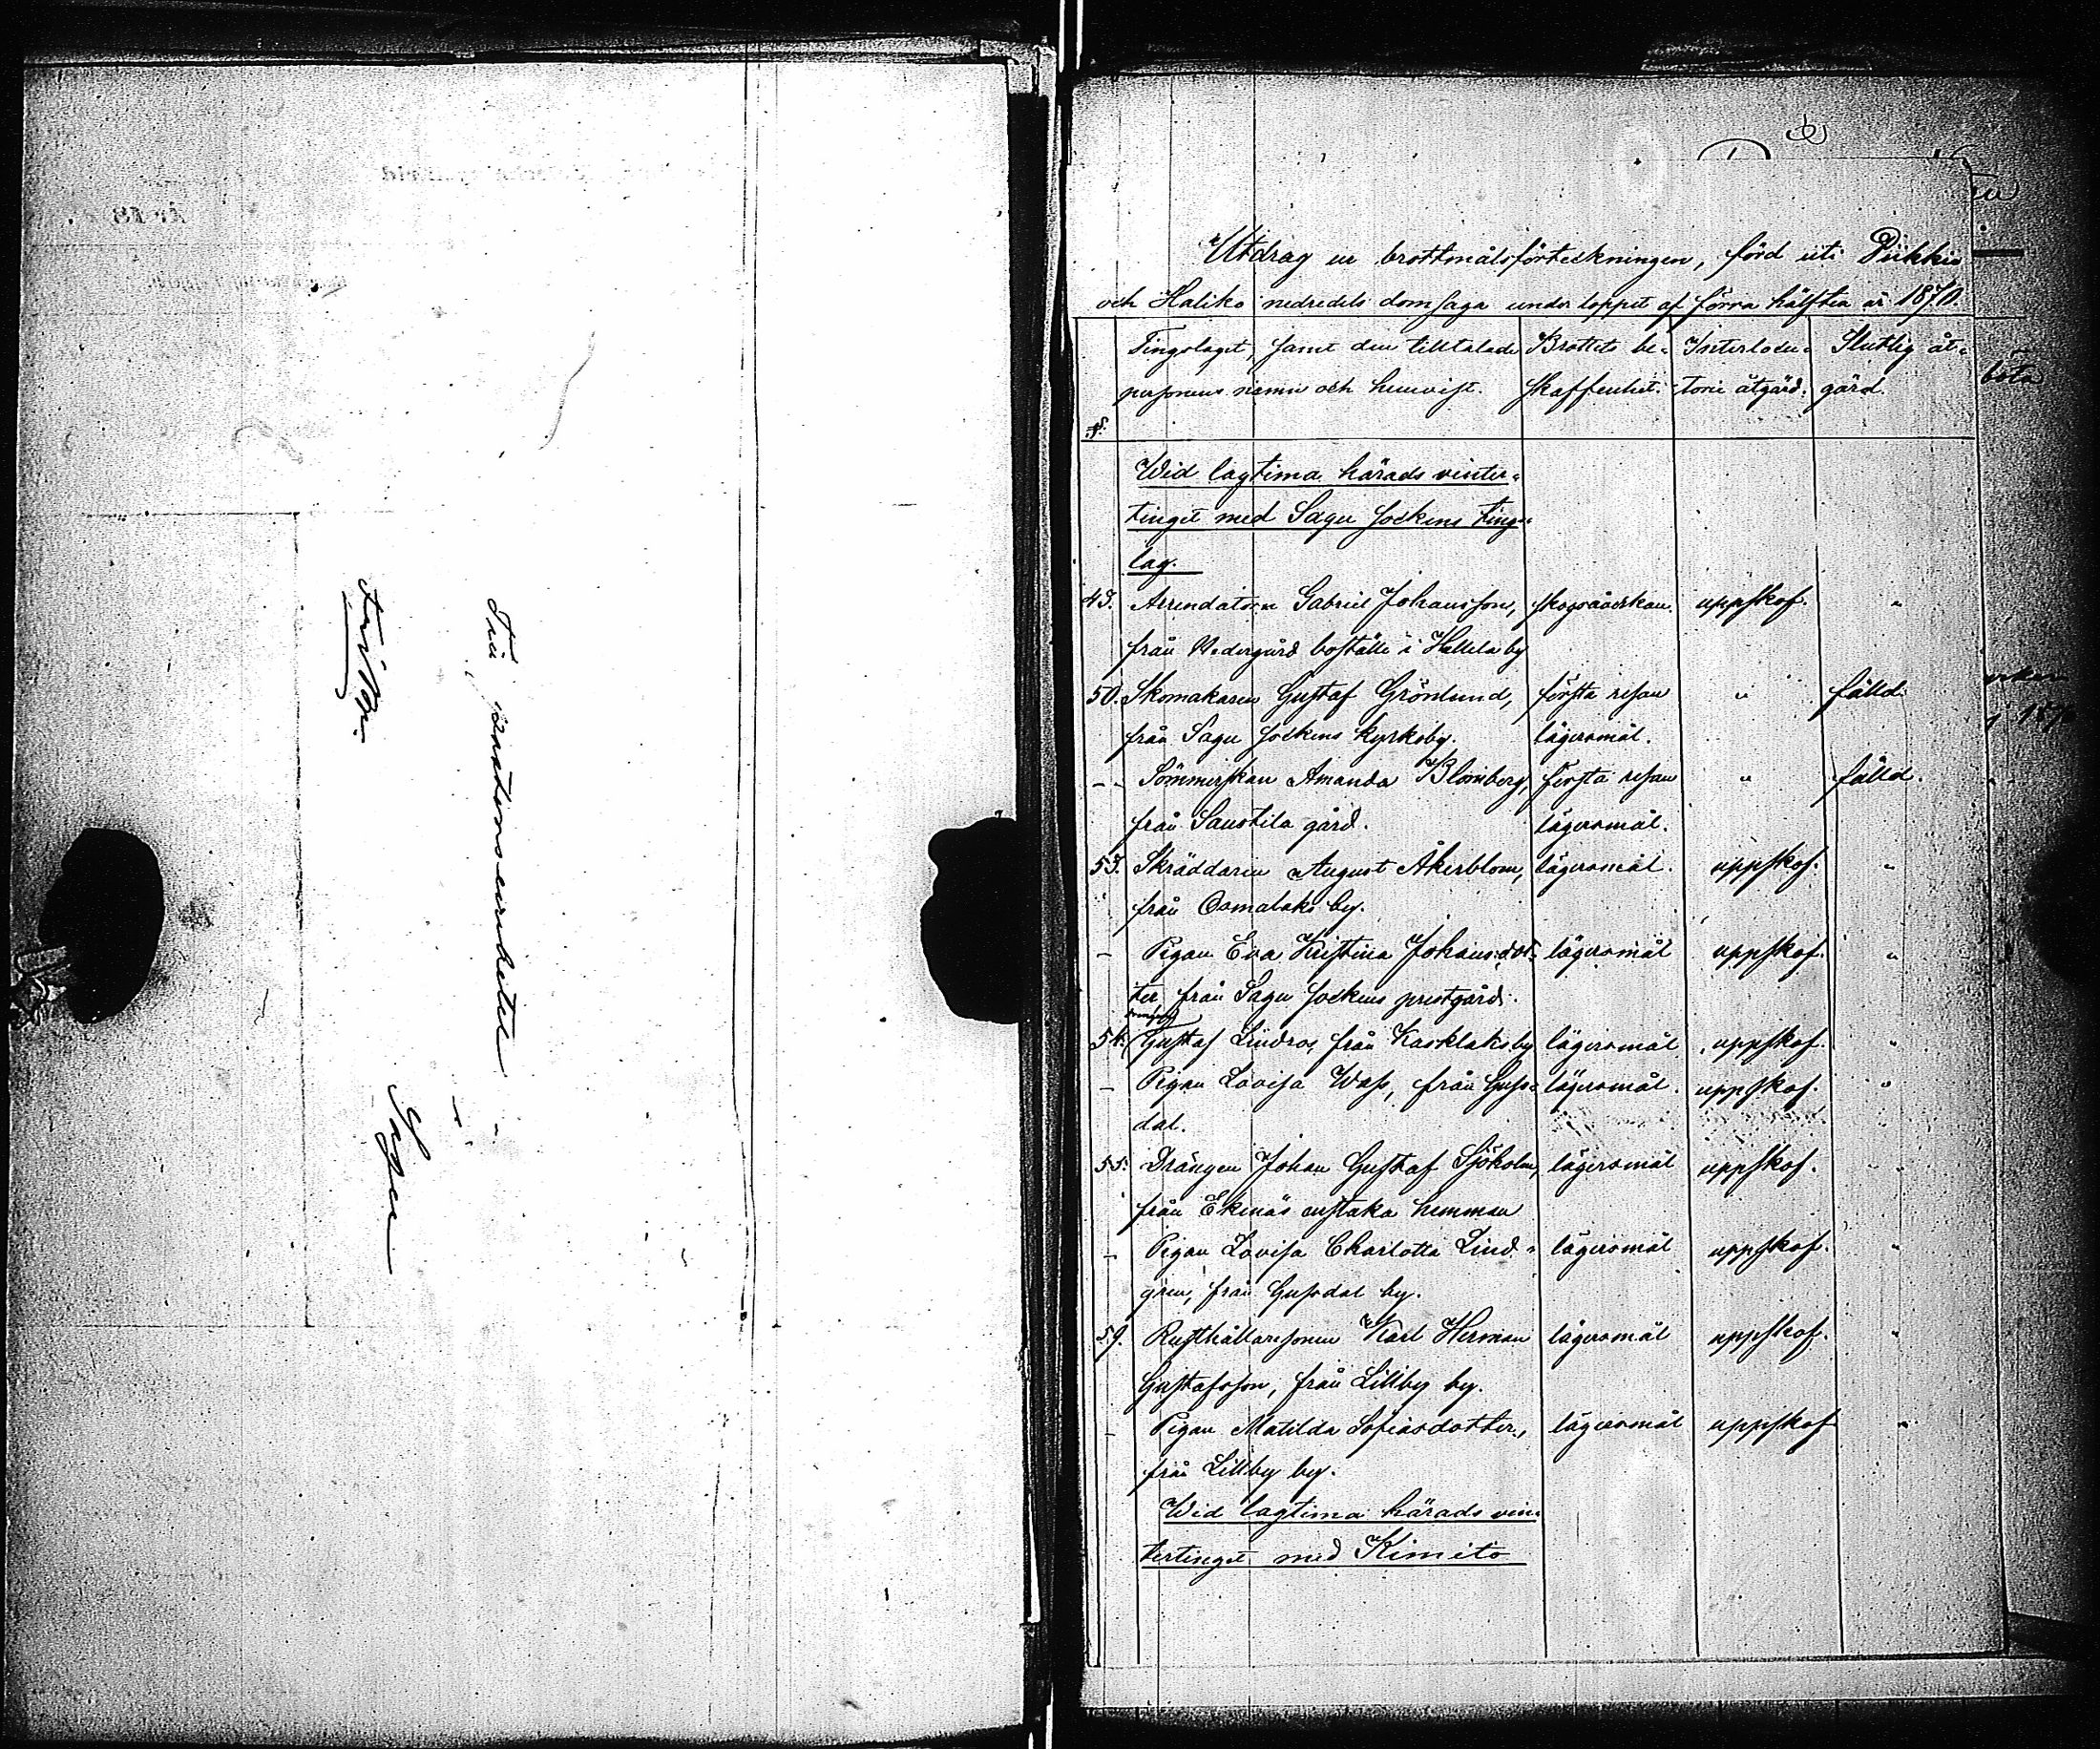 Till pastorsembetet
i
Sagu
Utdrag ur brottmålsförteckningen, förd uti Piikkis
och Haliko nedredels domsaga under loppet af förra hälften år 1870.
Tingslaget, samt den tilltalade Brottets be- Interlocu- Slutlig åt-
personens namn och hemvist. skaffenhet. torie åtgärd. gärd.
Wid lagtima härads vinter-
tinget med Sagu sockens tings-
lag.
43. Arrendatorn Gabriel Johansson, skogsåverkan. uppskof. "
från Nedergård boställe i Hallela by
50. Skomakaren Gustaf Grönlund, första resan " fälld.
från Sagu sockens kyrkoby. lägersmål.
- - Sömmerskan Amanda Blomberg, första resan " fälld.
från Saustila gård. lägersmål.
53. Skräddaren August Åkerblom, lägersmål. uppskof. "
från Osmalaks by.
- Pigan Eva Kristina Johansdot- lägersmål uppskof. "
ter, från Sagu sockens prestgård.
54. Gustaf Lindros, från Kasklaks by lägersmål uppskof. "
- Pigan Lovisa Wass, från Guss- lägersmål. uppskof. "
dal.
55. Drängen Johan Gustaf Sjöholm, lägersmål uppskof. "
från Ekenäs enstaka hemman
- Pigan Lovisa Charlotta Lind- lägersmål uppskof. "
gren, från Gussdal by.
59. Rusthållaresonen Karl Herman lägersmål uppskof. "
Gustafsson, från Lillby by.
- Pigan Matilda Sofiasdotter, lägersmål uppskof "
från Lillby by.
Wid lagtima härads vin-
tertinget med Kimito
böta